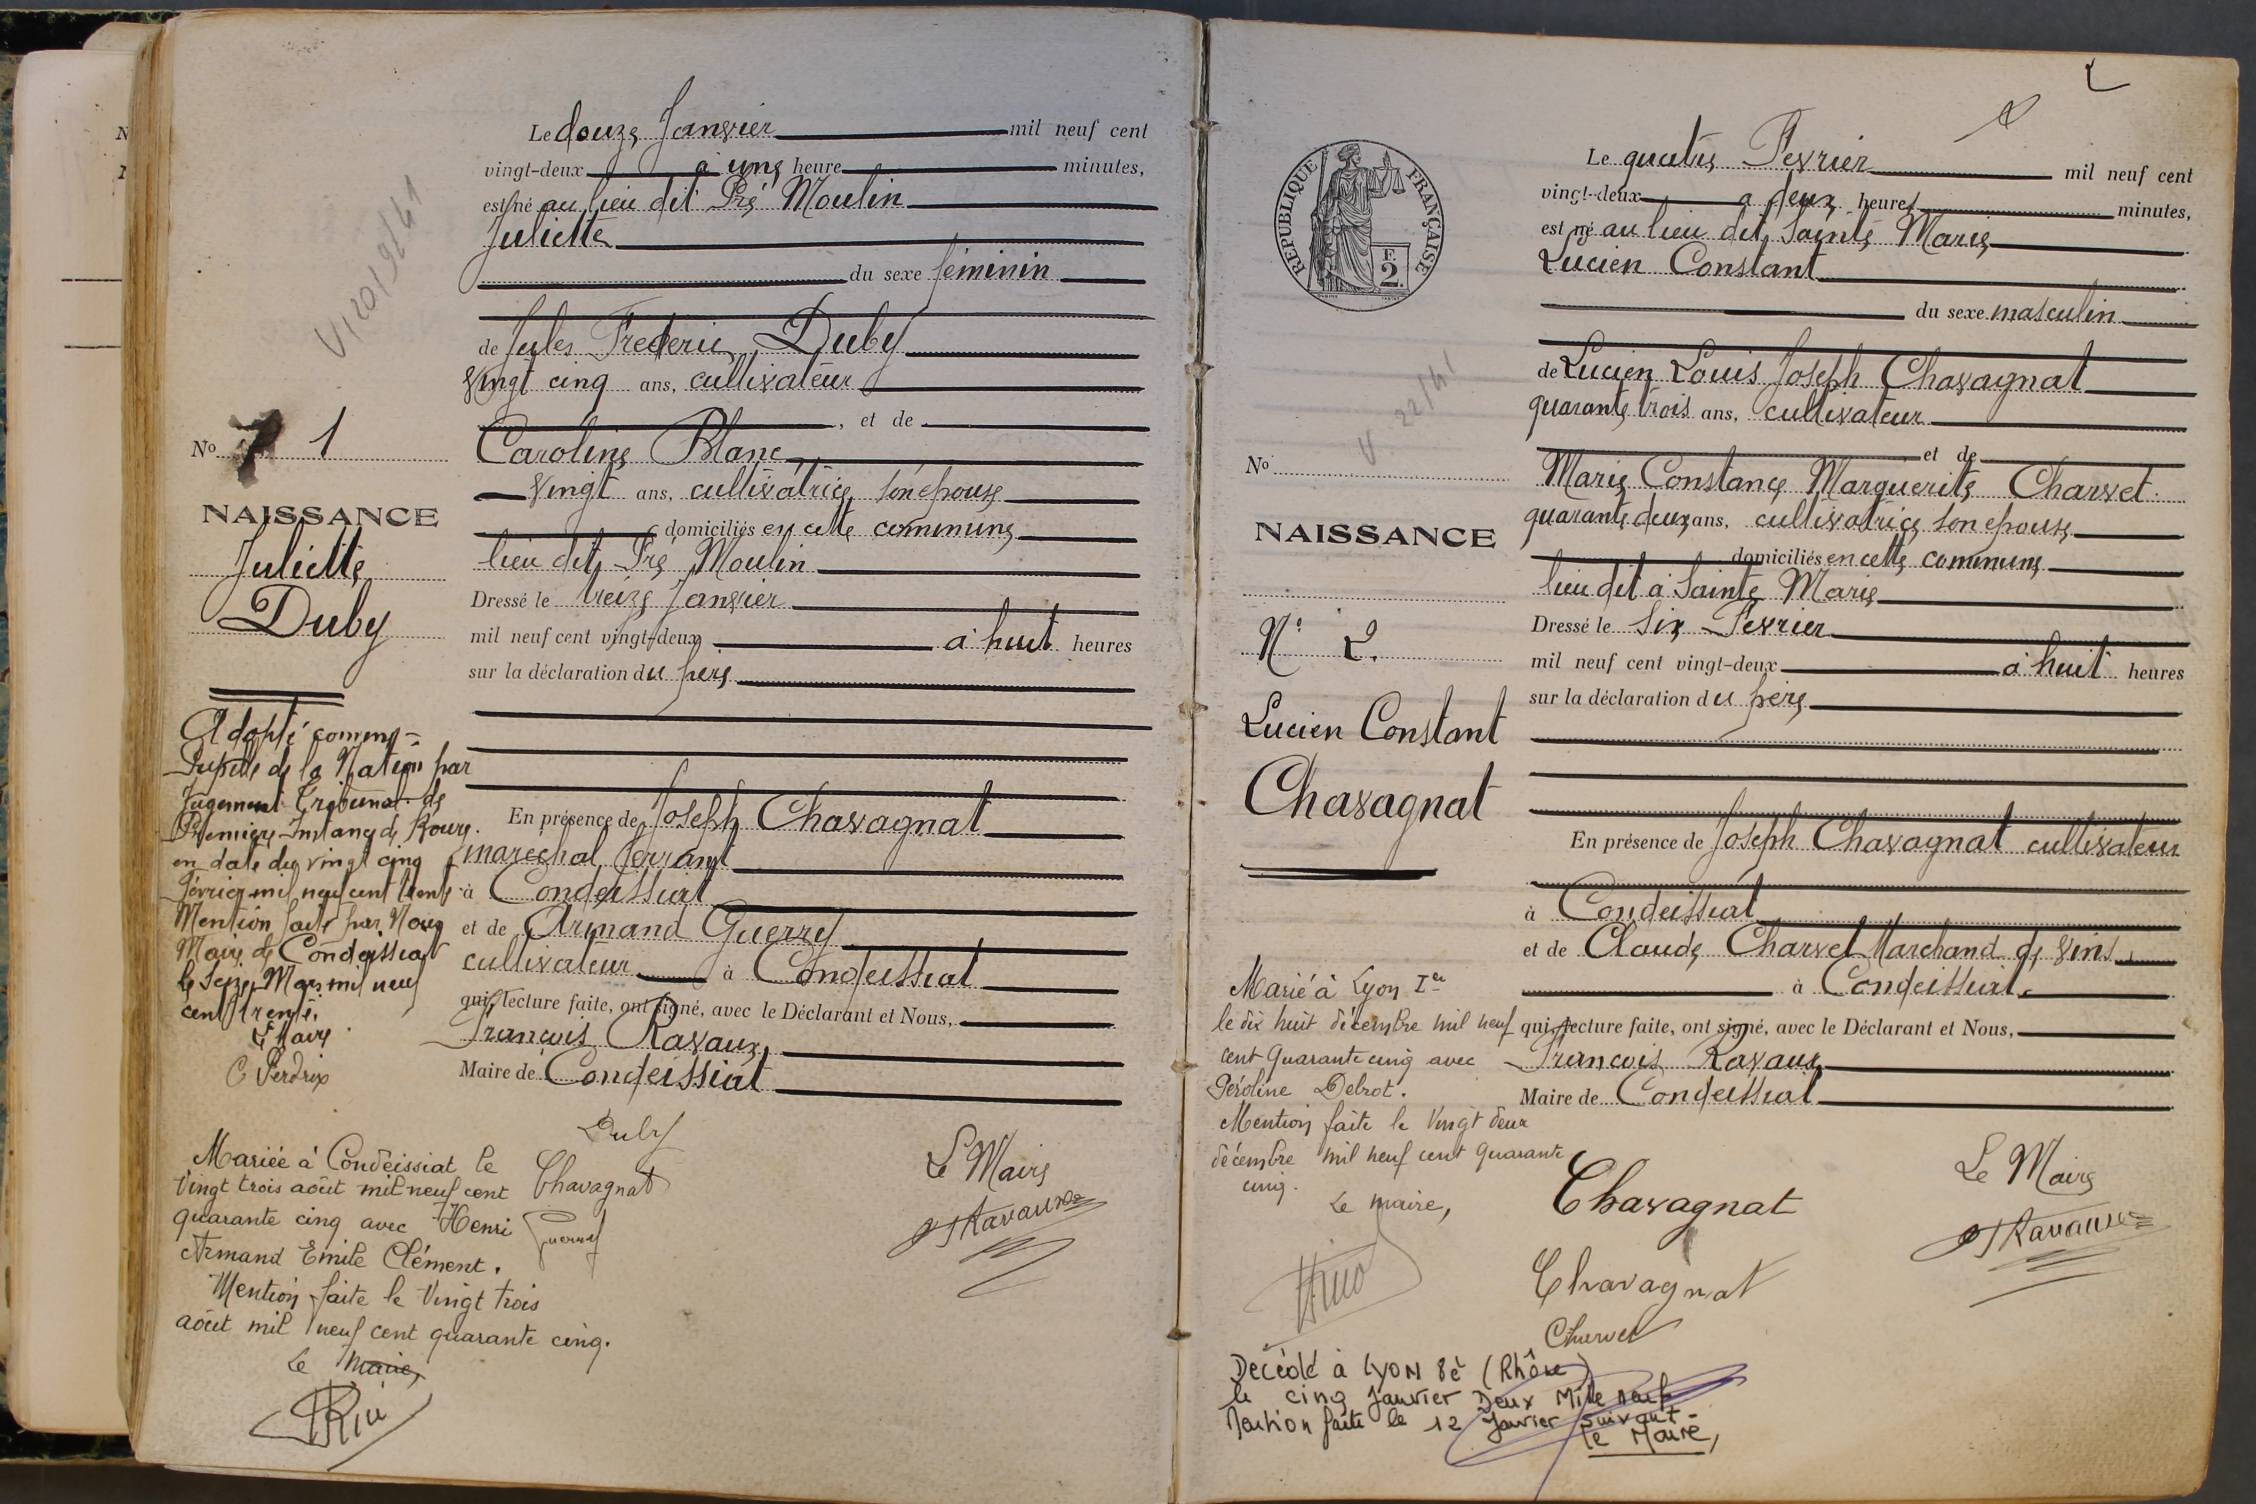 V, 20/9/41
Le douze Janvier mil neuf cent
vingt-deux à une heure minutes,
est né au lieu dit Pré Moulin
Juliette
du sexe féminin
de Jules Frederic Duby
vingt cinq ans, cultivateur
, et de
Caroline Blanc
vingt ans, cultivatrice son épouse
domiciliés en cette commune
lieu dit Pré Moulin
Dressé le treize Janvier
mil neuf cent vingt-deux à huit heures
sur la déclaration du père
En présence de Joseph Chavagnat
maréchal ferrant
à Condeissiat
et de Armand Guerry
cultivateur à Condeissiat
qui, lecture faite, ont signé, avec le Déclarant et Nous,
François Ravaux
Maire de Condeissiat
Duby
Chavagnat
Guerry
Le Maire
Ravaux
No 1
NAISSANCE
Juliette
Duby
Adopté comme
Pupille de la Nation par
Jugement Tribunal de
Première Instance de Bourg
en date du vingt cinq
Février mil neuf cent trente
Mention faite par Nous
Maire de Condeissiat
le Seize Mars mil neuf
cent trente.
Le Maire
C Perdrix
Mariée à Condeissiat le
Vingt trois août mil neuf cent
quarante cinq avec Henri
Armand Emile Clément.
Mention faite le Vingt trois
août mil neuf cent quarante cinq.
Le Maire,
2
REPUBLIQUE FRANÇAISE
F.
2.
V. 22/41
Le quatre Fevrier mil neuf cent
vingt-deux à deux heures minutes,
est né au lieu dit Sainte Marie
Lucien Constant
du sexe masculin
de Lucien Louis Joseph Chavagnat
quarante trois ans, cultivateur
et de
Marie Constance Marguerite Charvet
quarante deux ans, cultivatrice son épouse
domiciliés en cette commune
lieu dit à Sainte Marie
Dressé le six Fevrier
mil neuf cent vingt-deux à huit heures
sur la déclaration du père
En présence de Joseph Chavagnat cultivateur
à Condeissiat
et de Claude Charvet Marchand de vins
à Condeissiat.
qui, lecture faite, ont signé, avec le Déclarant et Nous,
François Ravaux
Maire de Condeissiat
Chavagnat
Chavagnat
Charvet
Le Maire
Ravaux
No
NAISSANCE
No 2.
Lucien Constant
Chavagnat
Marié à Lyon Ier
le dix huit décembre mil neuf
cent quarante cinq avec
Péroline Debrot.
Mention faite le Vingt deux
décembre mil neuf cent quarante
cinq.
Le maire,
Décédé à LYON 8è (Rhône)
le cinq Janvier Deux Mille neuf
Mention faite le 12 Janvier suivant-
le Maire,